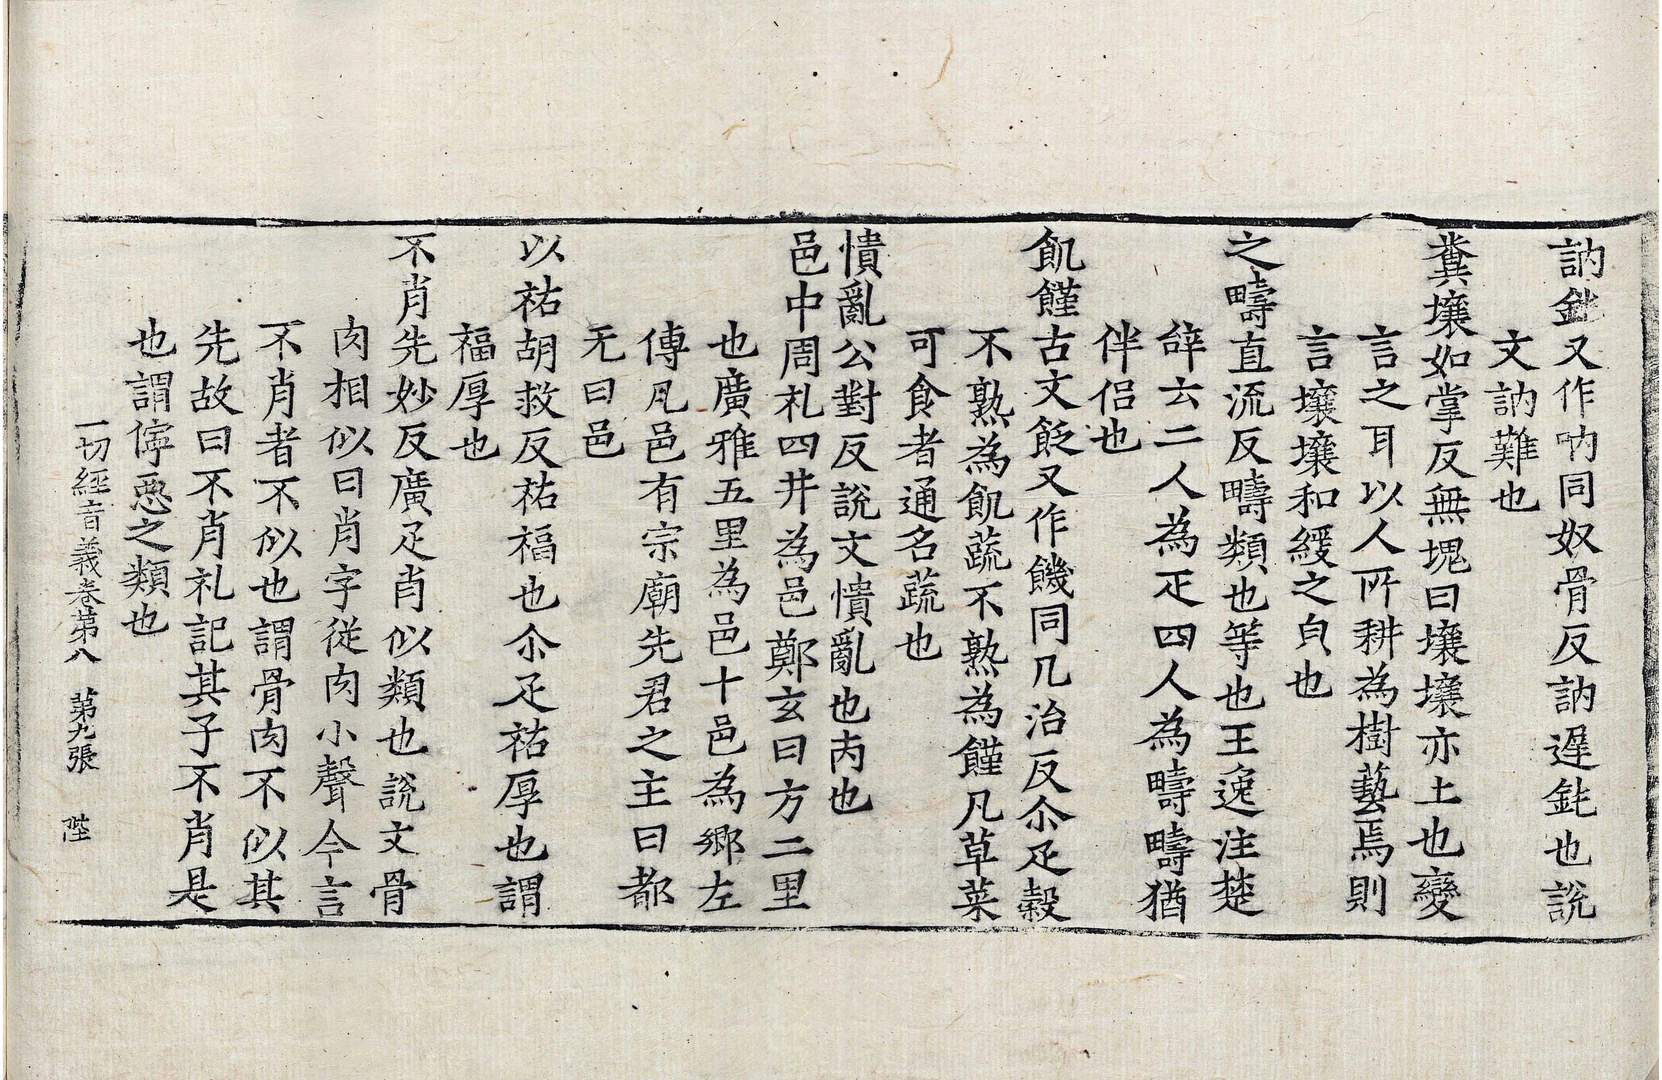 訥鈍又作吶同奴骨反訥遲鈍也說
文訥難也
糞壤如掌反無塊曰壤壤亦土也變
言之耳以人所耕為樹藝焉則
言壤壤和緩之皃也
之疇直流反疇類也等也王逸注楚
辝云二人為疋四人為疇疇猶
伴侣也
飢饉古文飦又作饑同几治反尒疋穀
不熟為飢蔬不熟為饉凡草菜
可食者通名蔬也
憒亂公對反說文憒亂也丙也
邑中周礼四井為邑鄭玄曰方二里
也廣雅五里為邑十邑為鄉左
傳凢邑有宗廟先君之主曰都
无曰邑
以祐胡救反祐福也尒疋祐厚也謂
福厚也
不肖先妙反廣疋肖似類也說文骨
肉相似曰肖字從肉小聲今言
不肖者不似也謂骨肉不似其
先故曰不肖礼記其子不肖是
也謂儜惡之類也
一切經音義卷第八 第九張 陛